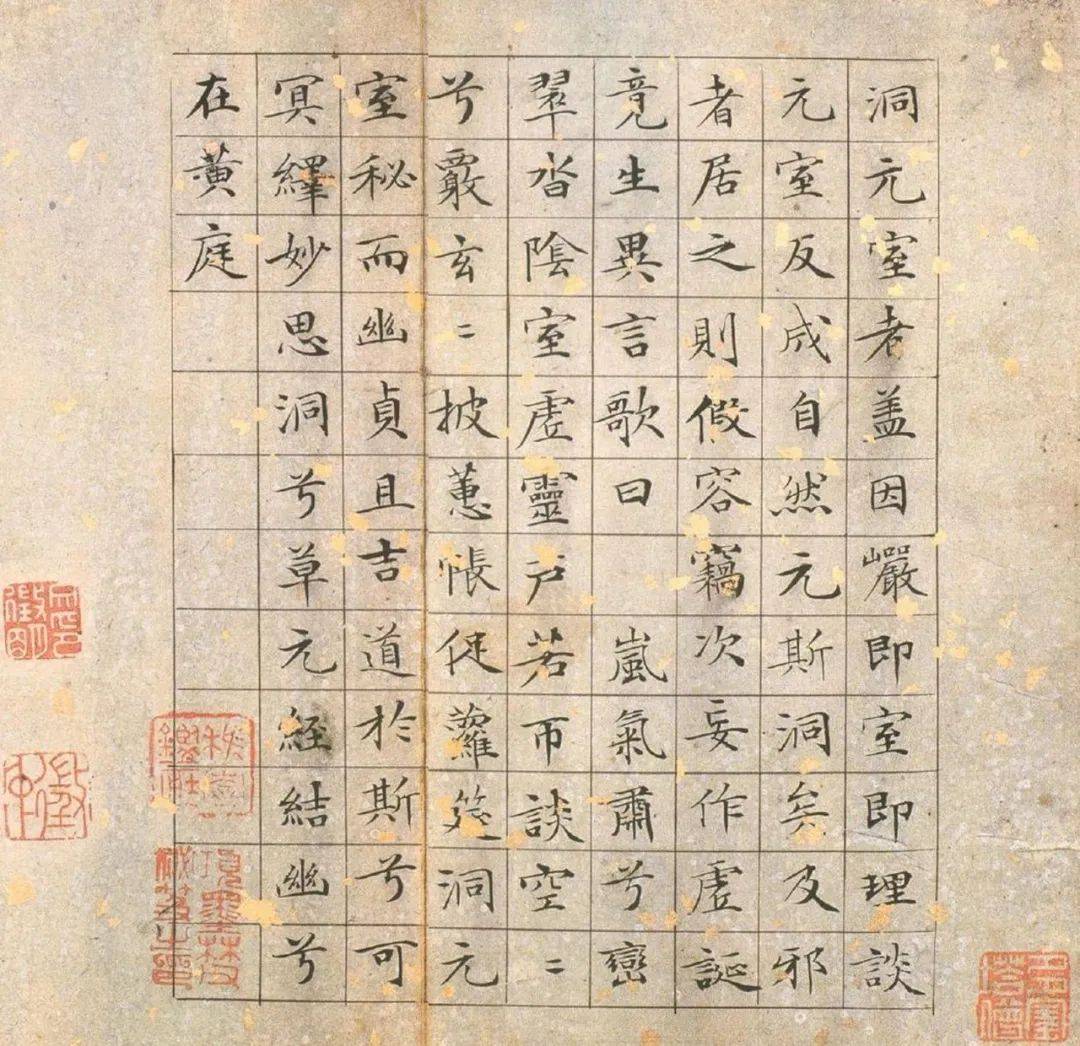 洞元室者盖因巖即室即理談
元室反成自然元斯洞矣及邪
者居之則假容竊次妄作虛誕
竟生異言歌曰 嵐氣肅兮巒
翠沓陰室虛靈戶若市談空〻
兮覈玄〻披蕙帳促蘿筵洞元
室秘而幽貞且吉道於斯兮可
冥繹妙思洞兮草元經結幽兮
在黃庭